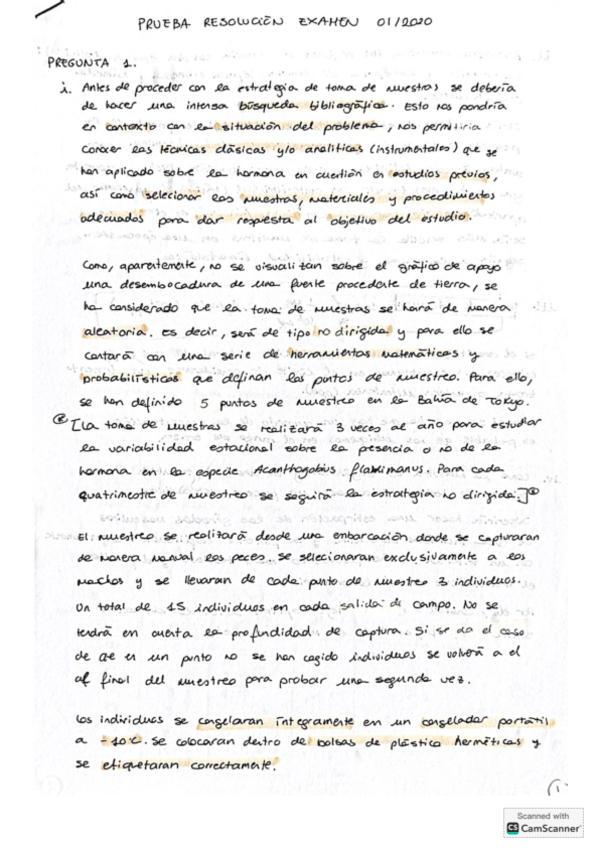 PRUEBA RESOLUCIÓN EXAMEN 01/2020
PREGUNTA 1.
i. Antes de proceder con la estrategia de toma de muestras se debería
de hacer una intensa búsqueda bibliográfica. Esto nos pondría
en contexto con la situación del problema, nos permitiria
conocer las técnicas clásicas y/o analíticas (instrumentales) que se
han aplicado sobre la hormona en cuestión en estudios previos,
así como seleccionar las muestras, materiales y procedimientos
adecuados para dar respuesta al objetivo del estudio.
Como, aparentemente, no se visualizan sobre el gráfico de apoyo
una desembocadura de una fuente procedente de tierra, se
ha considerado que la toma de muestras se hará de manera
aleatoria. Es decir, será de tipo no dirigida y para ello se
contará con una serie de herramientos matemáticas y
probabilísticas que definan los puntos de muestreo. Para ello,
se han definido 5 puntos de muestreo en la Bahía de Tokyo.
[La toma de muestras se realizará 3 veces al año para estudiar
la variabilidad estacional sobre la presencia o no de la
hormona en la especie Acanthogobius flavimanus. Para cada
quatrimestre de muestreo se seguirá la estrategia no dirigida.]
El muestreo se realizará desde una embarcación donde se capturaran
de manera manual los peces. Se seleccionaran exclusivamente a los
machos y se llevaran de cada punto de muestreo 3 individuos.
Un total de 15 individuos en cada salida de campo. No se
tendrá en cuenta la profundidad de captura. Si se da el caso
de qe en un punto no se han cogido individuos se volverá a el
al final del muestreo para probar una segunda vez.
Los individuos se congelaran íntegramente en un congelador portátil
a -10°C. Se colocaran dentro de bolsas de plástico herméticas y
se etiquetaran correctamente.
1
Scanned with
CS CamScanner